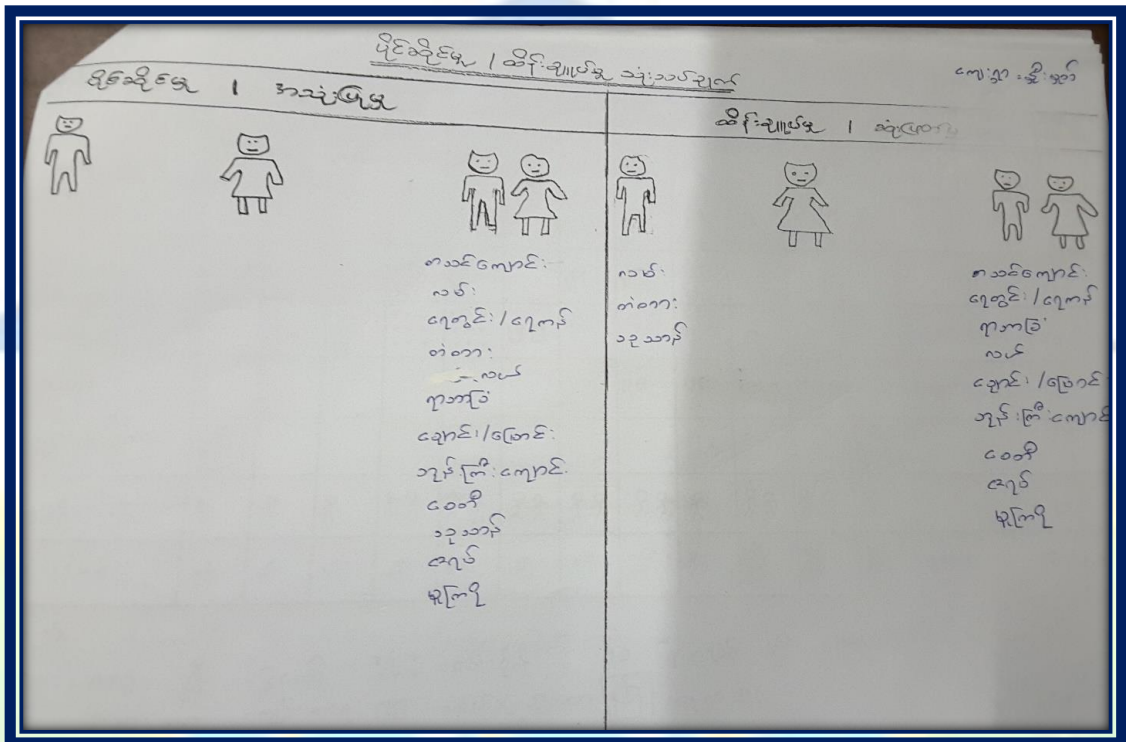 ပိုင်ဆိုင်မှု / ထိန်းချုပ်မှု သုံးသပ်ချက်
ပိုင်ဆိုင်မှု / အသုံးပြုမှု
ထိန်းချုပ်မှု /
စာသင်ကျောင်း
လမ်း
ရေတွင်း/ရေကန်
တံတား
လယ်
ရာဘာခြံ
ချောင်း/မြောင်း
ဘုန်းကြီးကျောင်း
စေတီ
သုသာန်
ဇရပ်
မူကြို
လမ်း
တံတား
သုသာန်
စာသင်ကျောင်း
ရေတွင်း/ရေကန်
ရာဘာခြံ
လယ်
ချောင်း/မြောင်း
ဘုန်းကြီးကျောင်း
စေတီ
ဇရပ်
မူကြို